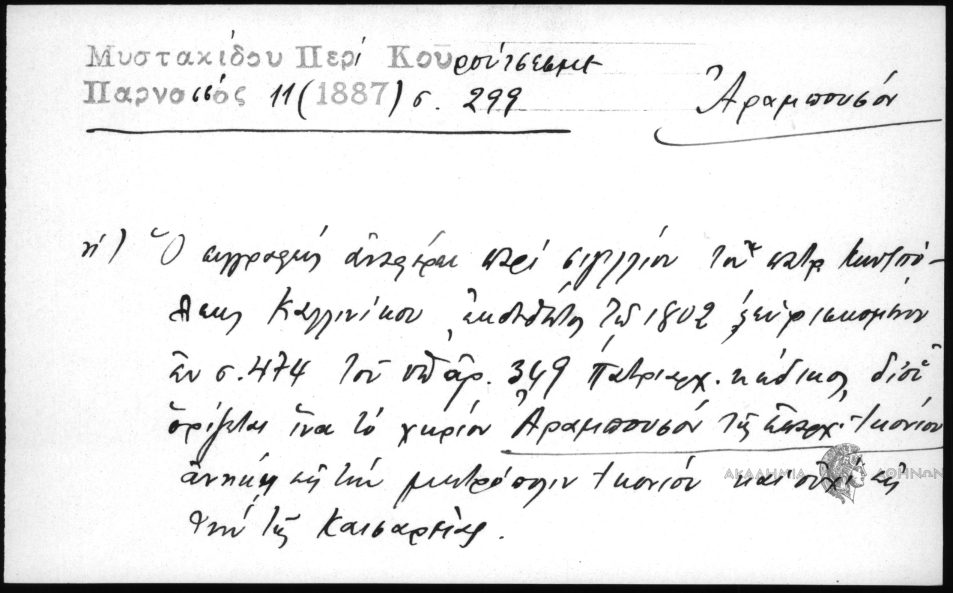 Μυστακίδου Περί Κουρούτσεσμε
Παρνασσός 11 (1887) σ. 299
Ἀραμπουσόν
Ὁ συγγραφεύς ἀναφέρει περί σιγιλλίου τοῦ πατρ Κωνστ/πό-
λεως Καλλινίκου ἐκδοθέντος τῷ 1802 ἐξευρισκομένου
ἐν σ. 474 τοῦ ὑπ' ἀρ. 349 πατριαρχ. κώδικος δι' οὗ
ὁρίζεται ἵνα τό χωρίον Ἀραμπουσόν τῆς ἐπαρχ. Ἰκονίου
ἀνήκῃ εἰς τήν μητρόπολιν Ἰκονίου καί οὐχί εἰς
τήν τῆς Καισαρείας.
ΑΚΑΔΗΜΙΑ ΑΘΗΝΩΝ